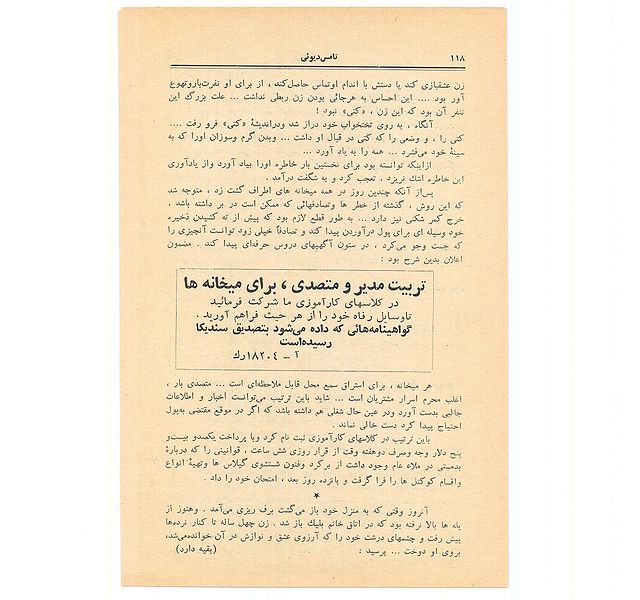 ۱۱۸
تامس‌دیوئی
زن عشقبازی کند یا دستش با اندام اوتماس حاصل‌کند ، از برای او نفرت‌بار‌و‌تهوع
آور بود .... این احساس به هرجائی بودن زن ربطی نداشت ... علت بزرگ این
تنفر آن بود که این زن ، «کتی» نبود !
آنگاه ، به روی تختخواب خود دراز شد ودراندیشهٔ «کتی» فرو رفت ....
کتی را ، و وضعی را که کتی در قبال او داشت ... وبدن گرم وسوزان اورا که به
سینهٔ خود می‌فشرد ... همه را به یاد آورد ...
ازاینکه توانسته بود برای نخستین بار خاطره اورا بیاد آورد واز یادآوری
این خاطره اشك نریزد ، تعجب کرد و به شگفت درآمد .
پس‌از آنکه چندین روز در همه میخانه های اطراف گشت زد ، متوجه شد
که این روش ، گذشته از خطر ها وتصادفهائی که ممکن است در بر داشته باشد ،
خرج کمر شکنی نیز دارد ... به طور قطع لازم بود که پیش از ته کشیدن ذخیره
خود وسیله ای برای پول درآوردن پیدا کند و تصادفاً خیلی زود توانست آنچیزی را
که جست وجو می‌کرد ، در ستون آگهیهای دروس حرفه‌ای پیدا کند . مضمون
اعلان بدین شرح بود :
تربیت مدیر و متصدی ، برای میخانه ها
در کلاسهای کارآموزی ما شرکت فرمائید
تاوسایل رفاه خود را از هر حیث فراهم آورید .
گواهینامه‌هائی که داده می‌شود بتصدیق سندیکا
رسیده‌است
آ - ۱۸۲۰۴رك
هر میخانه ، برای استراق سمع محل قابل ملاحظه‌ای است ... متصدی بار ،
اغلب محرم اسرار مشتریان است ... شاید باین ترتیب می‌توانست اخبار و اطلاعات
جالبی بدست آورد ودر عین حال شغلی هم داشته باشد که اگر در موقع مقتضی به‌پول
احتیاج پیدا کرد دست خالی نماند .
باین ترتیب در کلاسهای کارآموزی ثبت نام کرد وبا پرداخت یکصدو بیست‌و
پنج دلار وجه وصرف دوهفته وقت از قرار روزی شش ساعت ، قوانینی را که دربارهٔ
بدمستی در ملاء عام وجود داشت از برکرد وفنون شستشوی گیلاس ها وتهیهٔ انواع
واقسام کوکتل ها را فرا گرفت و پانزده روز بعد ، امتحان خود را داد .
★
آنروز وقتی که به منزل خود باز می‌گشت برف ریزی می‌آمد . وهنوز از
پله ها بالا نرفته بود که در اتاق خانم بلیك باز شد . زن چهل ساله تا کنار نرده‌ها
پیش رفت و چشمهای درشت خود را که آرزوی عشق و نوازش در آن خوانده‌می‌شد،
بروی او دوخت ... پرسید :
(بقیه دارد)